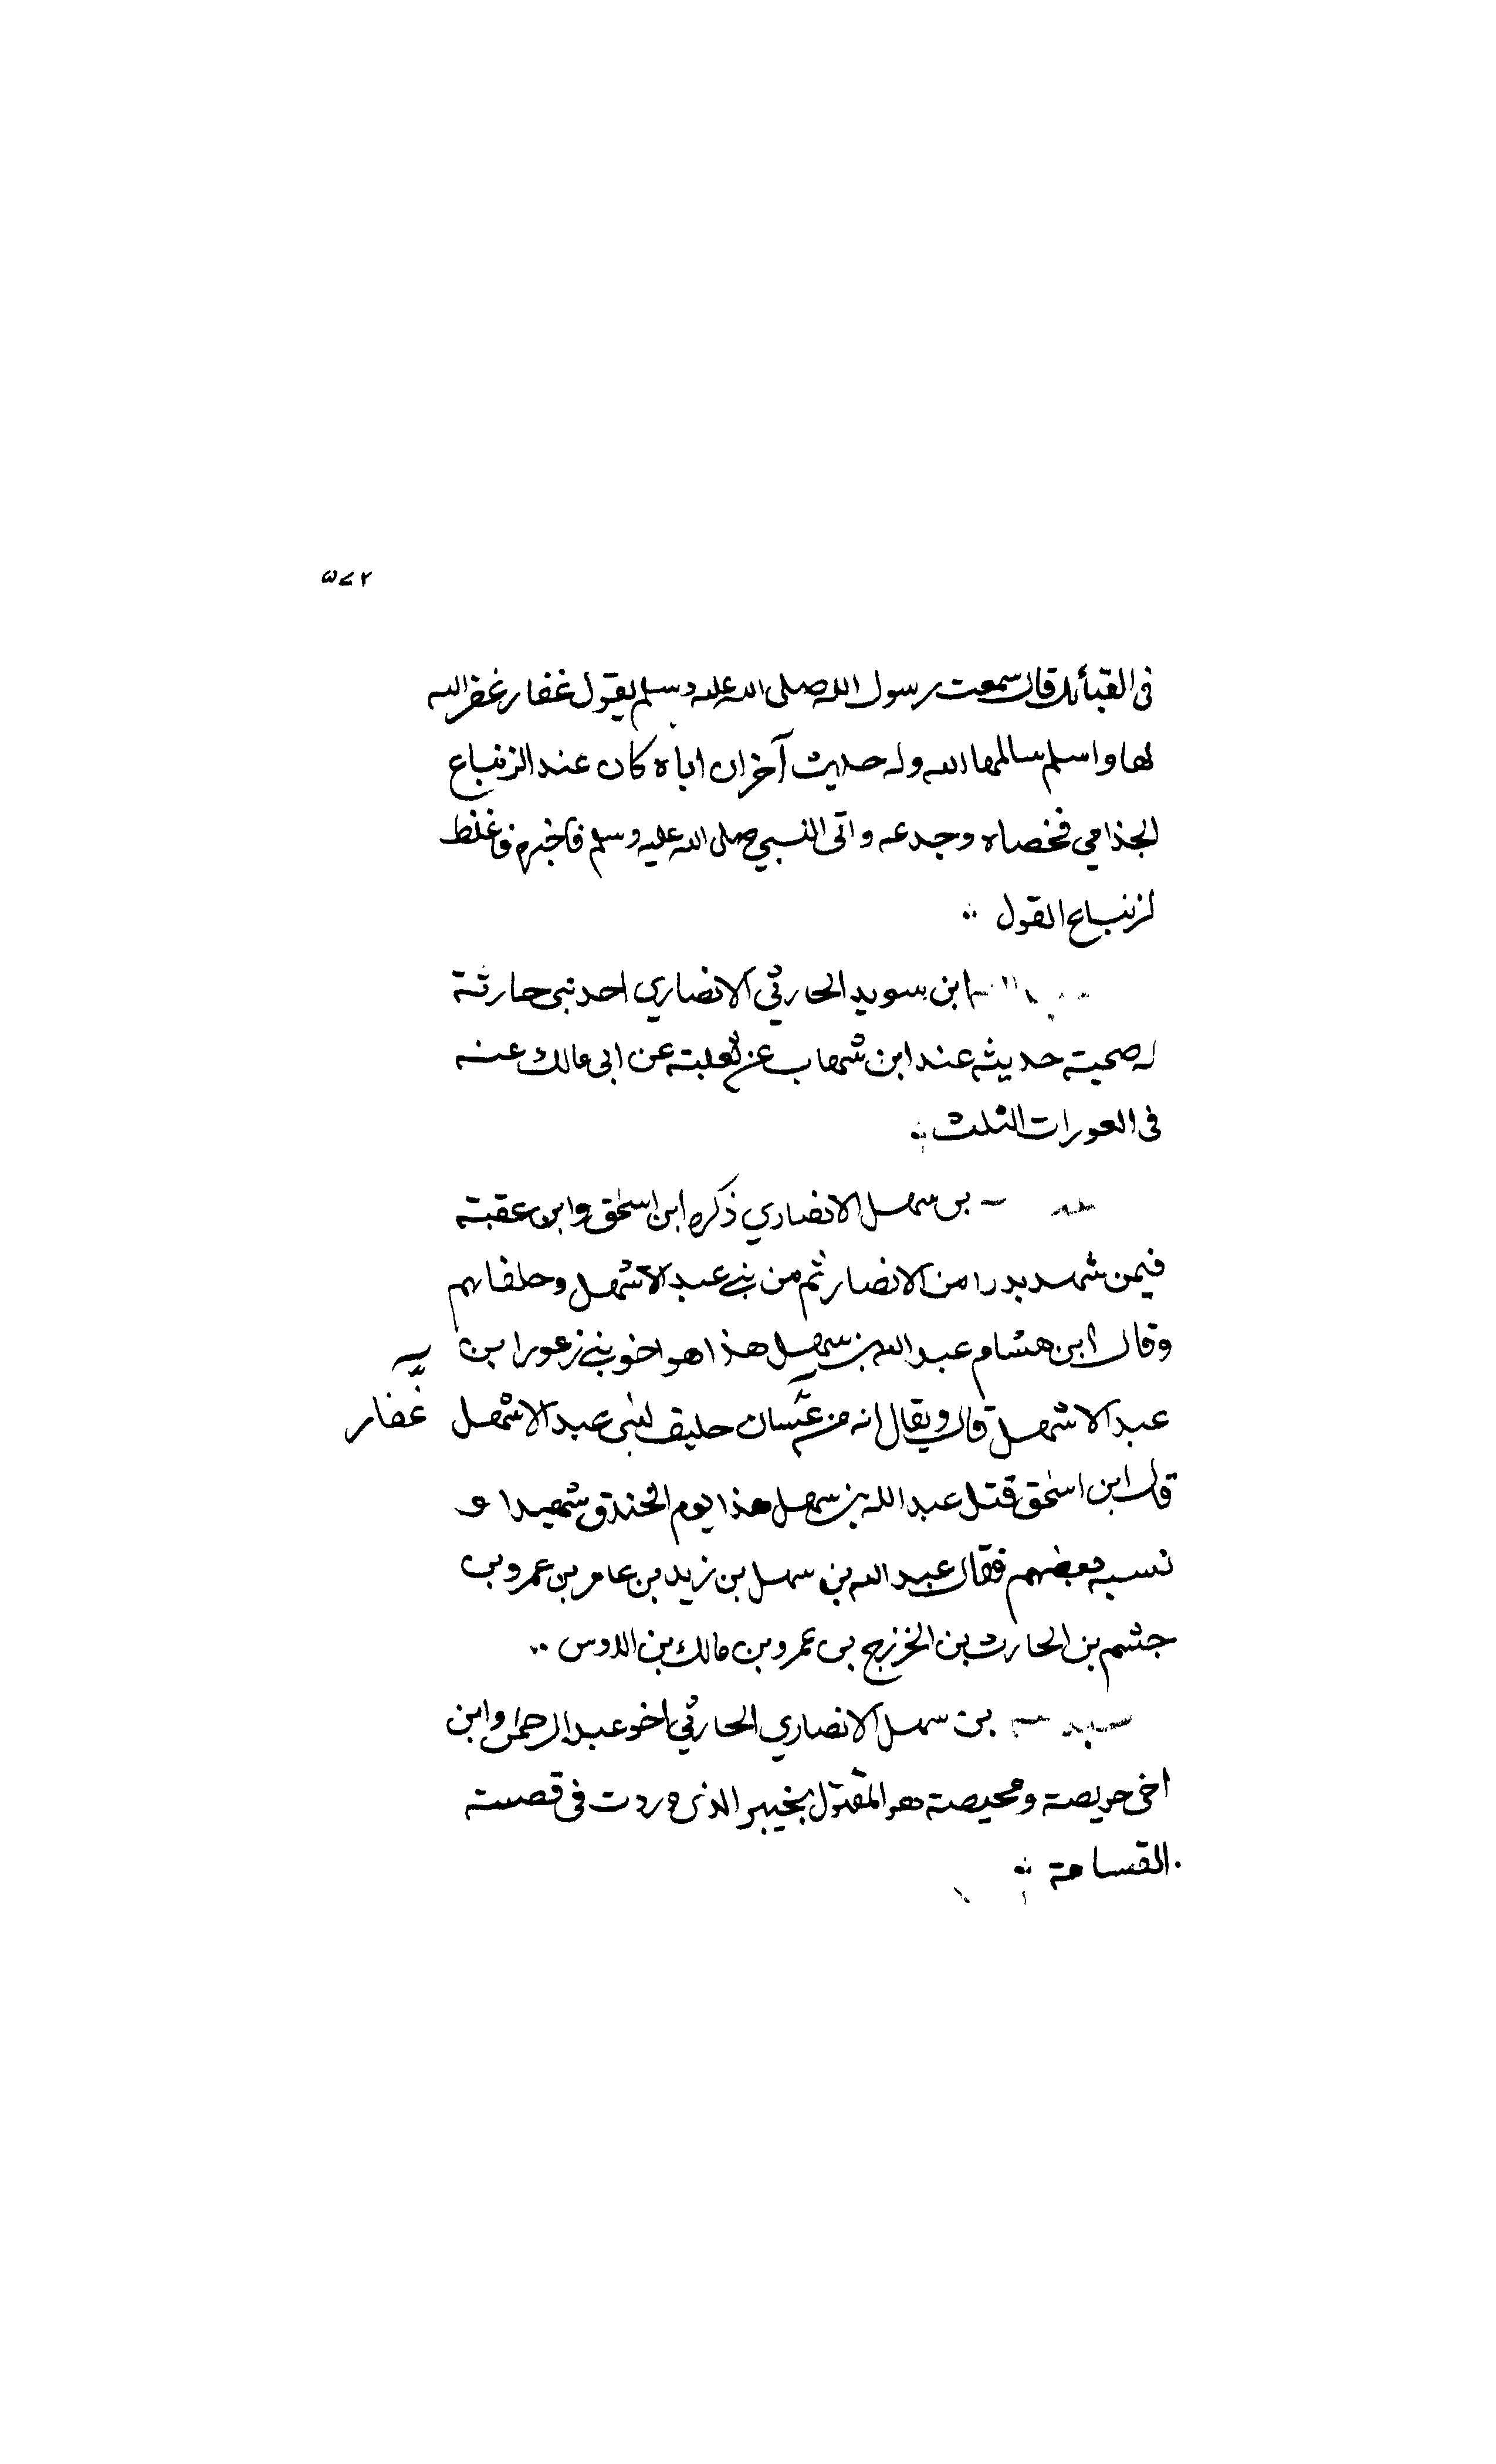 في القبائل قال سمعت رسول الله صلى الله عليه وسلم يقول غفار غفر الله
لها واسلم سالمها الله وله حديث آخر ان اباه كان عند الزنباع
الجذامي فخصاه وجدعه واتى النبي صلى الله عليه وسلم فاخبره فاغلظ
لزنباع القول
ابن سويد الحارثي الانصاري احد بني حارثة
له صحبة حديثه عند ابن شهاب عن ثعلبة عن ابي مالك عنه
في العورات الثلث
بن سهل الانصاري ذكره ابن اسحق وابن عقبة
فيمن شهد بدرا من الانصار ثم من بني عبد الاشهل وحلفايهم
وقال ابن هشام عبد الله بن سهل هذا هو اخو بني زعورا بن
عبد الاشهل قال ويقال انه من غسان حليف لبني عبد الاشهل
غفار
قال ابن اسحق قتل عبد الله بن سهل هذا يوم الخندق شهيدا و
نسبه بعضهم فقال عبد الله بن سهل بن زيد بن عامر بن عمرو بن
جشم بن الحارث بن الخزرج بن عمرو بن مالك بن الاوس
بن سهل الانصاري الحارثي اخو عبد الرحمن وابن
اخي حويصة ومحيصة هو المقتول بخيبر الذي وردت في قصته
القسامة